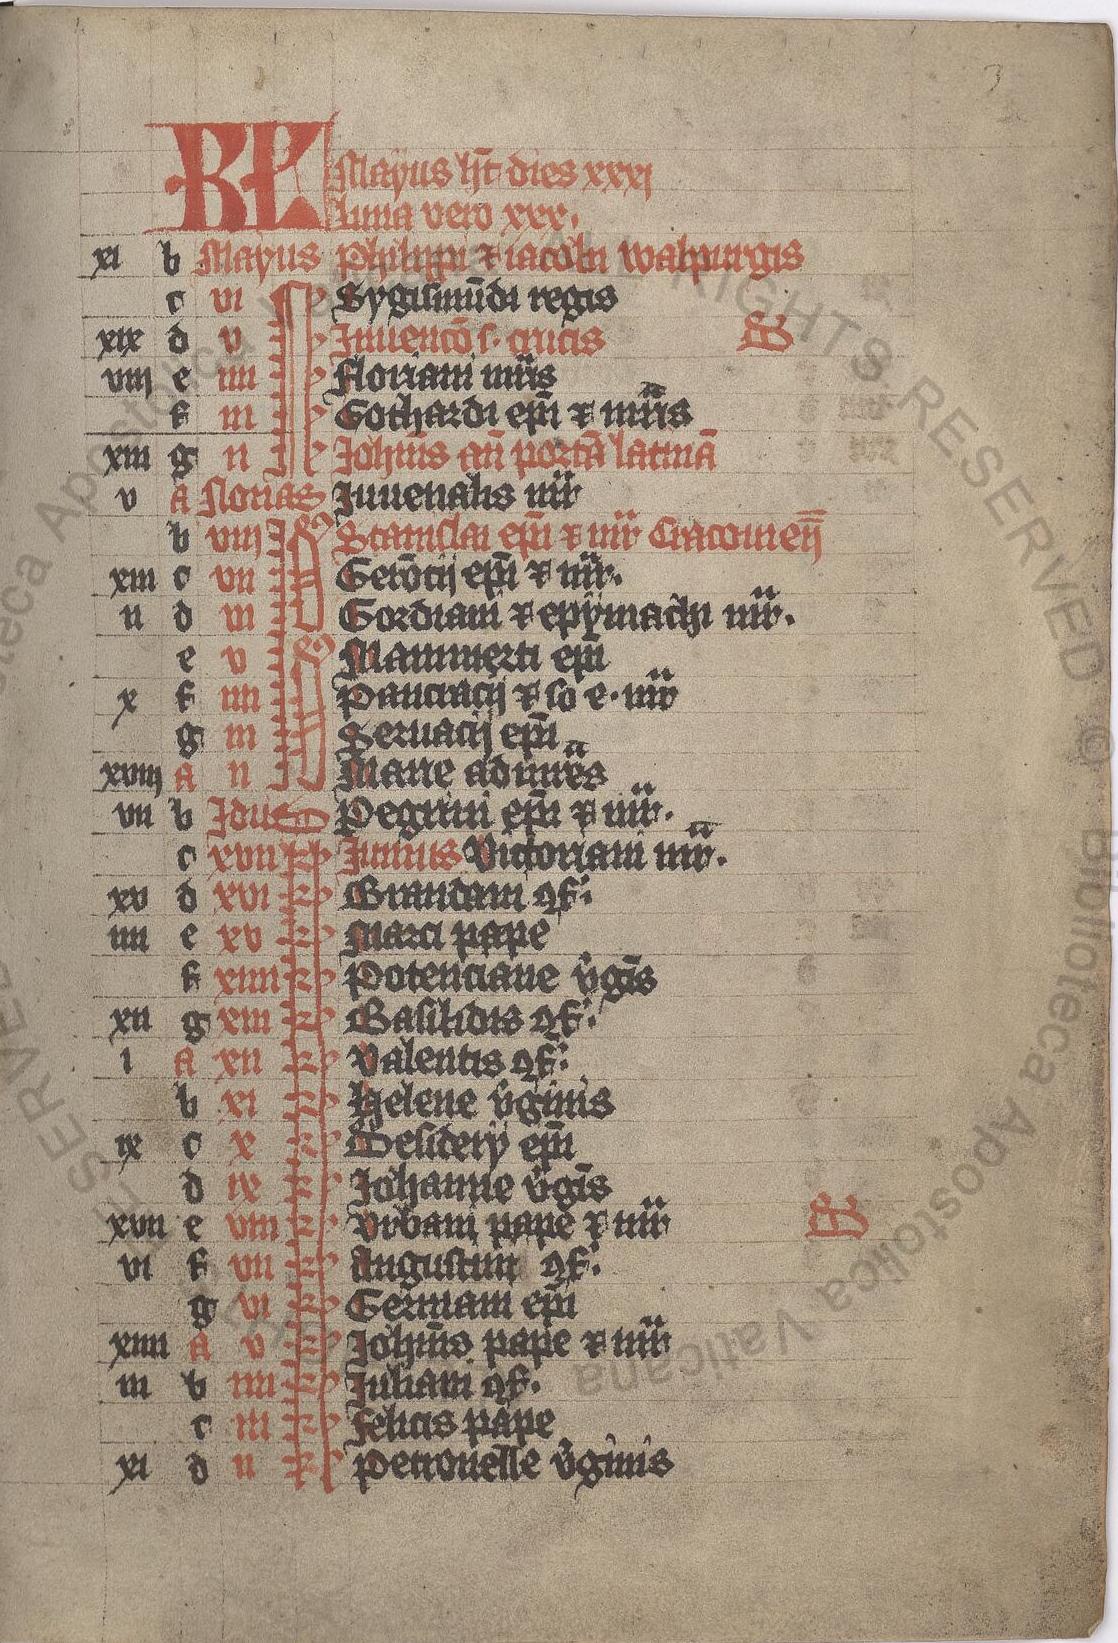 3
KL Mayus hт dies xxxi
luna vero xxx.
xi b Mayus Philippi ⁊ iacobi walpurgis
c vi Sygismūdi regis
xix d v Inuencō s. crucis
viij e iiii floriani mr̄is
f iii Gothardi ep̄i ⁊ mr̄is
xiii g ii Johīs an̄ portā latinā
v a Nonas Juuenalis mr̄
b viij Stanislai ep̄i ⁊ mr̄
xiii c vii ep̄i ⁊ mr̄.
ii d vi Gordiani ⁊ epymachi mr̄.
e v Mammerti ep̄i
x f iiii Pancracij ⁊ so e. mr̄
g iii Seruacij ep̄i
xviij a ii Marie ad mr̄es
vii b Idus ep̄i ⁊ mr̄.
c xvii Junius Victoriani mr̄.
xv d xvi Brandani 9f.
iiii e xv Marci pape
f xiiii Potenciane v̄gīs
xii g xiii Basilidis 9f.
i a xii Valentis 9f.
b xi Helene v̄ginis
ix c x Desidery ep̄i
d ix Johanne v̄gīs
xvii e viii Vrbani pape ⁊ mr̄
vi f vii Augustini 9f.
g vi Germani ep̄i
xiiii a v Johīs pape ⁊ mr̄
iii b iiii Juliani 9f.
c iii felicis pape
xi d ii Petronelle v̄ginis
Biblioteca Apostolica Vaticana ALL RIGHTS RESERVED © Biblioteca Apostolica Vaticana